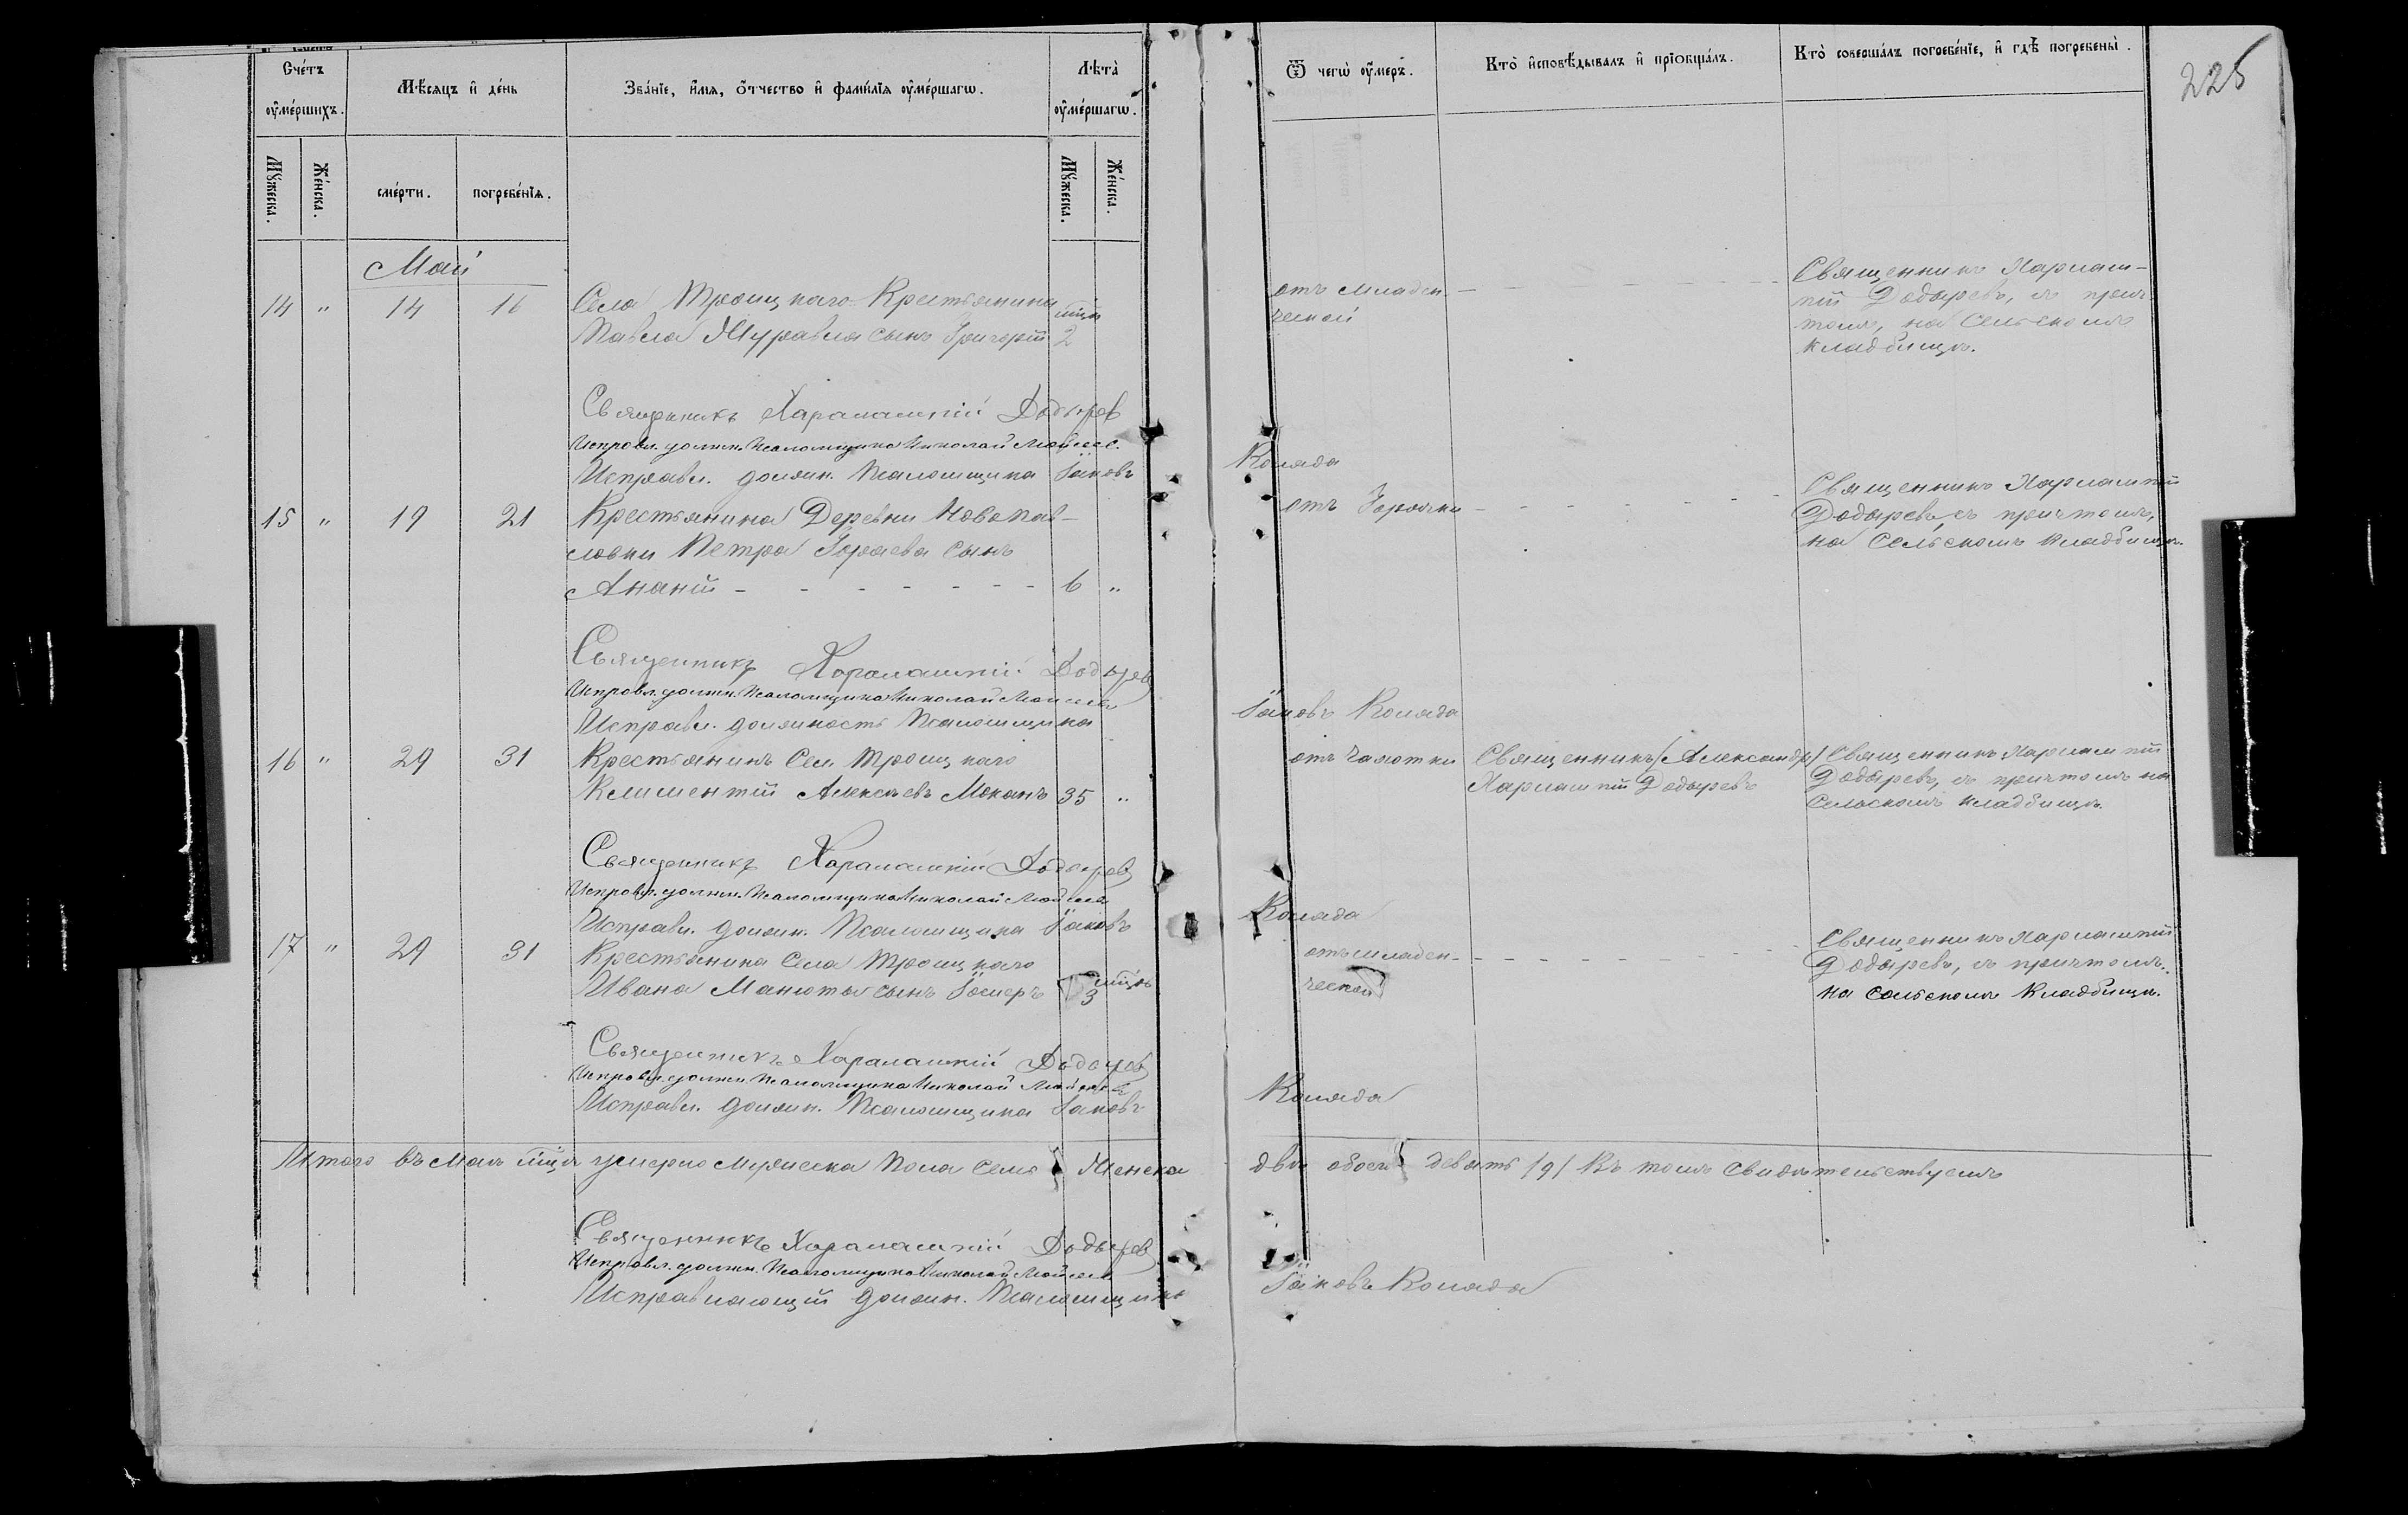 Счетъ оумершихъ.
Мѣсяцъ и день
Званіе, имя, отчество и фамилія оумершагω.
Лѣта оумершагω.
Ѿ чегω оумеръ.
Кто исповѣдывалъ и пріобщалъ.
Кто совершалъ погребеніе, и гдѣ погребены.
225
Мужеска.
Женска.
смерти.
погребенія.
Мужеска.
Женска.
Май
14 " 14 16 Села Троицкаго Крестьянина мцъ
Павла Журавля сынъ Григорій 2
отъ младен-
ческой
Священникъ Харлам-
пій Додыревъ, съ прич-
томъ, на Сельскомъ
кладбищѣ.
Священникъ Харалампій Додыревъ
Исправл. должн. Псаломщика Николай
Исправл. должн. Псаломщика Іаковъ Коляда
15 " 19 21 Крестьянина Деревни Новопав-
ловки Петра Гораева сынъ
Ананій - - - - - - - 6 "
отъ Горячки
Священникъ Харлампій
Додыревъ, съ причтомъ,
на Сельскомъ кладбищѣ.
Священникъ Харалампій Додыревъ
Исправл. должн. Псаломщика Николай
Исправл. должность Псаломщика Іаковъ Коляда
16 " 29 31 Крестьянинъ Сел. Троицкаго
Климентій Алексѣевъ Моканъ 35 "
отъ Чахотки
Священникъ /Александръ/
Харлампій Додыревъ
Священникъ Харлампій
Додыревъ, съ причтомъ на
Сельскомъ кладбищѣ.
Священникъ Харалампій Додыревъ
Исправл. должн. Псаломщика Николай
Исправл. должн. Псаломщика Іаковъ Коляда
17 " 29 31 Крестьянина Села Троицкаго
Ивана Манюты сынъ 3 мцъ
отъ младен-
ческой
Священникъ Харлампій
Додыревъ, съ причтомъ.
на сельскомъ Кладбищѣ.
Священникъ Харалампій Додыревъ
Исправл. должн. Псаломщика Николай
Исправл. должн. Псаломщика Іаковъ Коляда
Итого въ Маѣ мцѣ умерло Мужеска Пола Семь Женска двѣ обоего девять /9/ Въ томъ свидѣтельствуемъ
Священникъ Харалампій Додыревъ
Исправл. должн. Псаломщика Николай
Исправляющій должн. Псаломщика Іаковъ Коляда